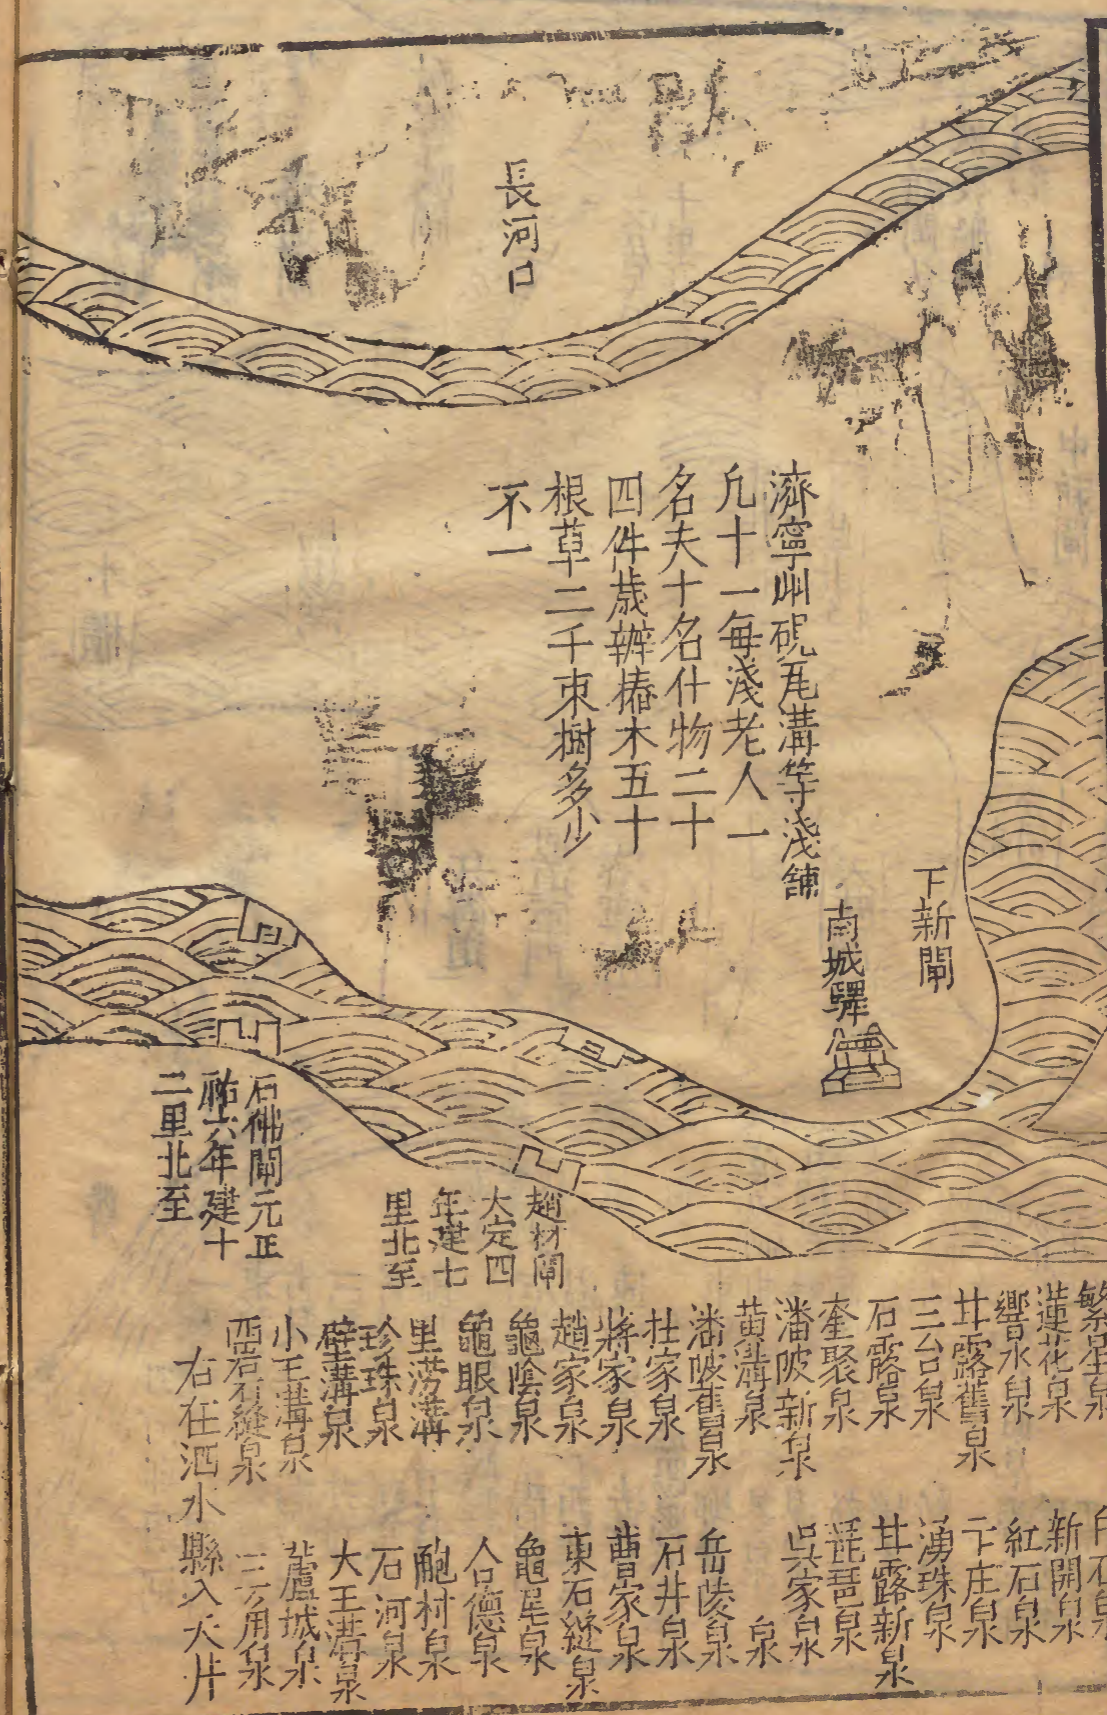 長河口
濟寧州硯瓦溝等淺舖
凢十一每淺老人一
名夫十名什物二十
四件歲辦樁木五十
根草二千束樹多少
不一
下新閘
南城驛
趙村閘
大定四
年建七
里北至
石佛閘元正
祐六年建十
二里北至
繁星泉
蓮花泉
響水泉
甘露舊泉
三台泉
石露泉
奎聚泉
潘陂新泉
黃溝泉
潘陂舊泉
杜家泉
蔣家泉
趙家泉
龜陰泉
龜眼泉
里澇溝
珍珠泉
壁溝泉
小王溝泉
石縫泉
石泉
新開泉
紅石泉
卞庄泉
湧珠泉
甘露新泉
琵琶泉
吳家泉
泉
岳陵泉
石井泉
曹家泉
東石縫泉
龜尾泉
合德泉
鮑村泉
石河泉
大王溝泉
蘆城泉
三角泉
右在泗水縣入大片